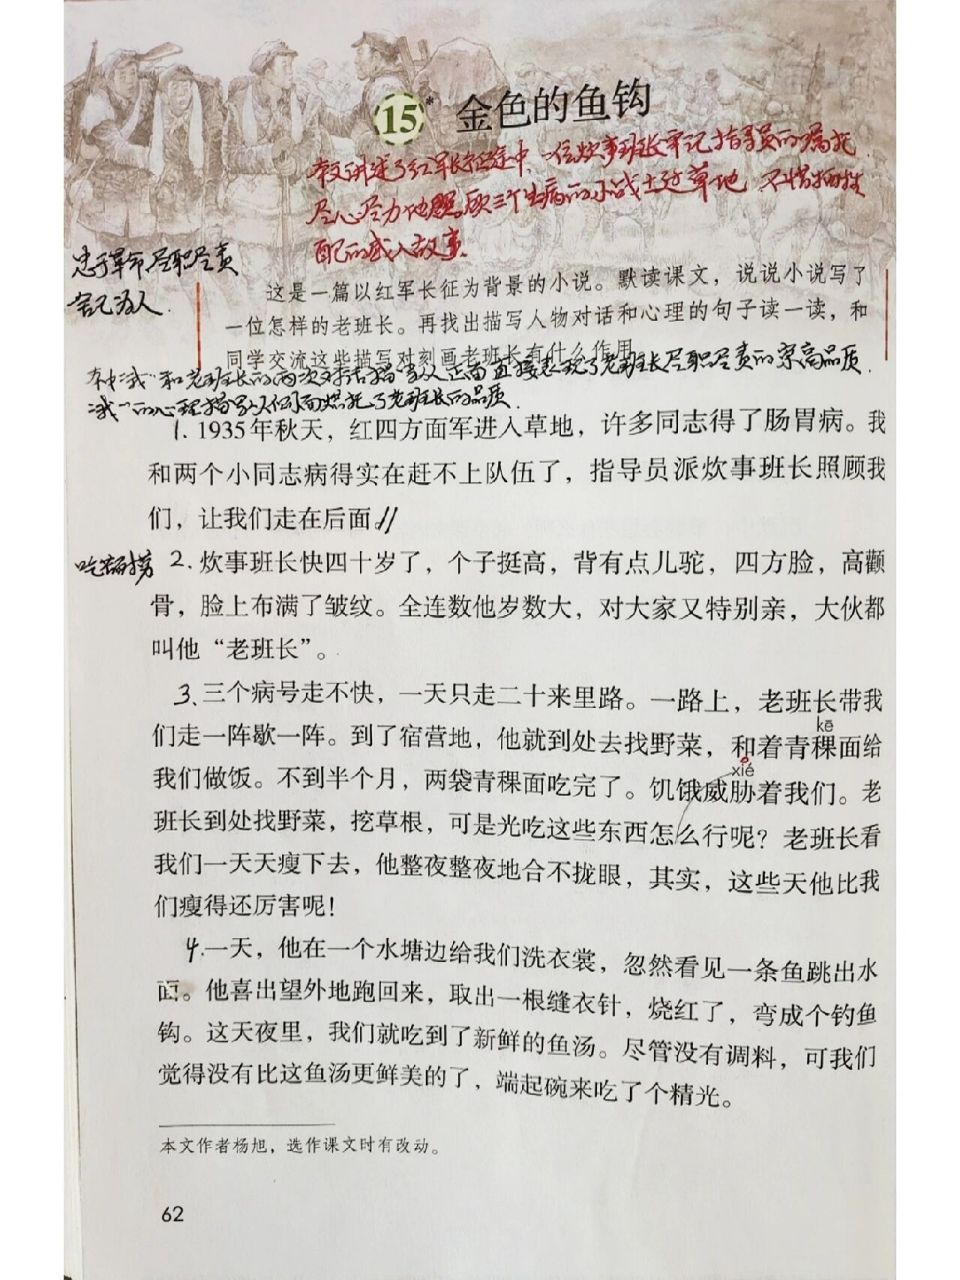 15* 金色的鱼钩
本文讲述了红军长征途中，一位炊事班长牢记指导员的嘱托
尽心尽力地照顾三个生病的小战士过草地，不惜牺牲
的感人故事
忠于革命 尽职尽责
舍己为人.
这是一篇以红军长征为背景的小说。默读课文，说说小说写了
一位怎样的老班长。再找出描写人物对话和心理的句子读一读，和
同学交流这些描写对刻画老班长有什么作用
“我”和老班长的两次对话描写从正面直接表现了老班长尽职尽责的崇高品质.
“我”的心理描写从侧面烘托了老班长的品质.
1. 1935年秋天，红四方面军进入草地，许多同志得了肠胃病。我
和两个小同志病得实在赶不上队伍了，指导员派炊事班长照顾我
们，让我们走在后面。//
2. 炊事班长快四十岁了，个子挺高，背有点儿驼，四方脸，高颧
骨，脸上布满了皱纹。全连数他岁数大，对大家又特别亲，大伙都
叫他“老班长”。
3. 三个病号走不快，一天只走二十来里路。一路上，老班长带我
kē
们走一阵歇一阵。到了宿营地，他就到处去找野菜，和着青稞面给
xié
我们做饭。不到半个月，两袋青稞面吃完了。饥饿威胁着我们。老
班长到处找野菜，挖草根，可是光吃这些东西怎么行呢？老班长看
我们一天天瘦下去，他整夜整夜地合不拢眼，其实，这些天他比我
们瘦得还厉害呢！
4. 一天，他在一个水塘边给我们洗衣裳，忽然看见一条鱼跳出水
面。他喜出望外地跑回来，取出一根缝衣针，烧红了，弯成个钓鱼
钩。这天夜里，我们就吃到了新鲜的鱼汤。尽管没有调料，可我们
觉得没有比这鱼汤更鲜美的了，端起碗来吃了个精光。
本文作者杨旭，选作课文时有改动。
62